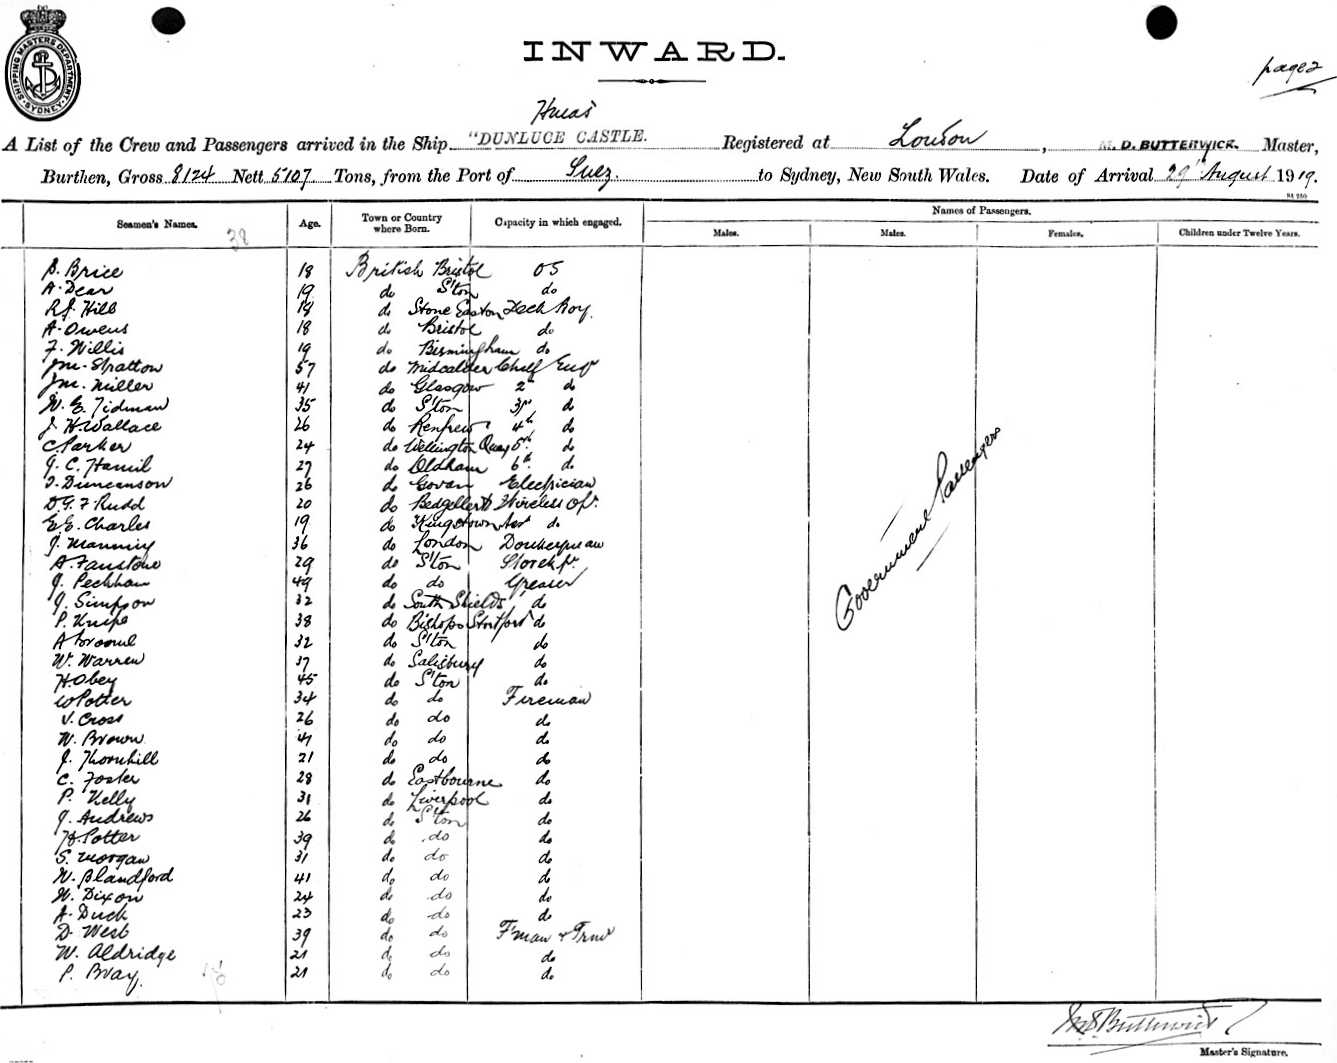 SHIPPING MASTERS DEPARTMENT SYDNEY
INWARD.
page 2
A List of the Crew and Passengers arrived in the Ship "DUNLUCE CASTLE. Registered at London, M. D. BUTTERWICK. Master,
Burthen, Gross 8124 Nett 5107 Tons, from the Port of Suez. to Sydney, New South Wales. Date of Arrival 29 August 1919.
Seamen's Names. Age. Town or Country where Born. Capacity in which engaged. Names of Passengers.
38 Males. Males. Females. Children under Twelve Years.
S. Brice 18 British Bristol OS
A. Dear 19 do S'ton do
R.J. Hill 18 do Stone Easton Deck Boy.
A. Owens 18 do Bristol do
F. Willis 19 do Birmingham do
Jno. Stratton 57 do Midcalder Chief Eng
Jno. Miller 41 do Glasgow 2 do
W. E. Tidman 35 do S'ton 3r do
J. H. Wallace 26 do Renfrew 4th do
C Parker 24 do Wellington Quay 5th do
J. C. Hamil 27 do Oldham 6th do
J. Duncanson 26 do Govan Electrician
D.G.F. Rudd 20 do Wireless Op.
E.E. Charles 19 do Kingstown do
J. Manning 36 do London Donkeyman
A. Faustone 29 do S'ton Storekpr
J. Peckham 49 do do Greaser
J. Simpson 32 do South Shields do
P. Knipe 38 do Bishops Stortford do
A 32 do S'ton do
W. Warren 37 do Salisbury do
H. Obey 45 do S'ton do
W Potter 34 do do Fireman
V. Cross 26 do do do
W. Brown 41 do do do
J. Thornhill 21 do do do
C. Foster 28 do Eastbourne do
P. Kelly 31 do Liverpool do
J. Andrews 26 do S'ton do
H. Potter 39 do do do
S. Morgan 31 do do do
W. Blandford 41 do do do
W. Dixon 24 do do do
A. Duck 23 do do do
D. West 39 do do F'man & Trmr
W. Aldridge 21 do do do
P. Bray. 21 do do do
Government Passengers
M D Butterwick
Master's Signature.